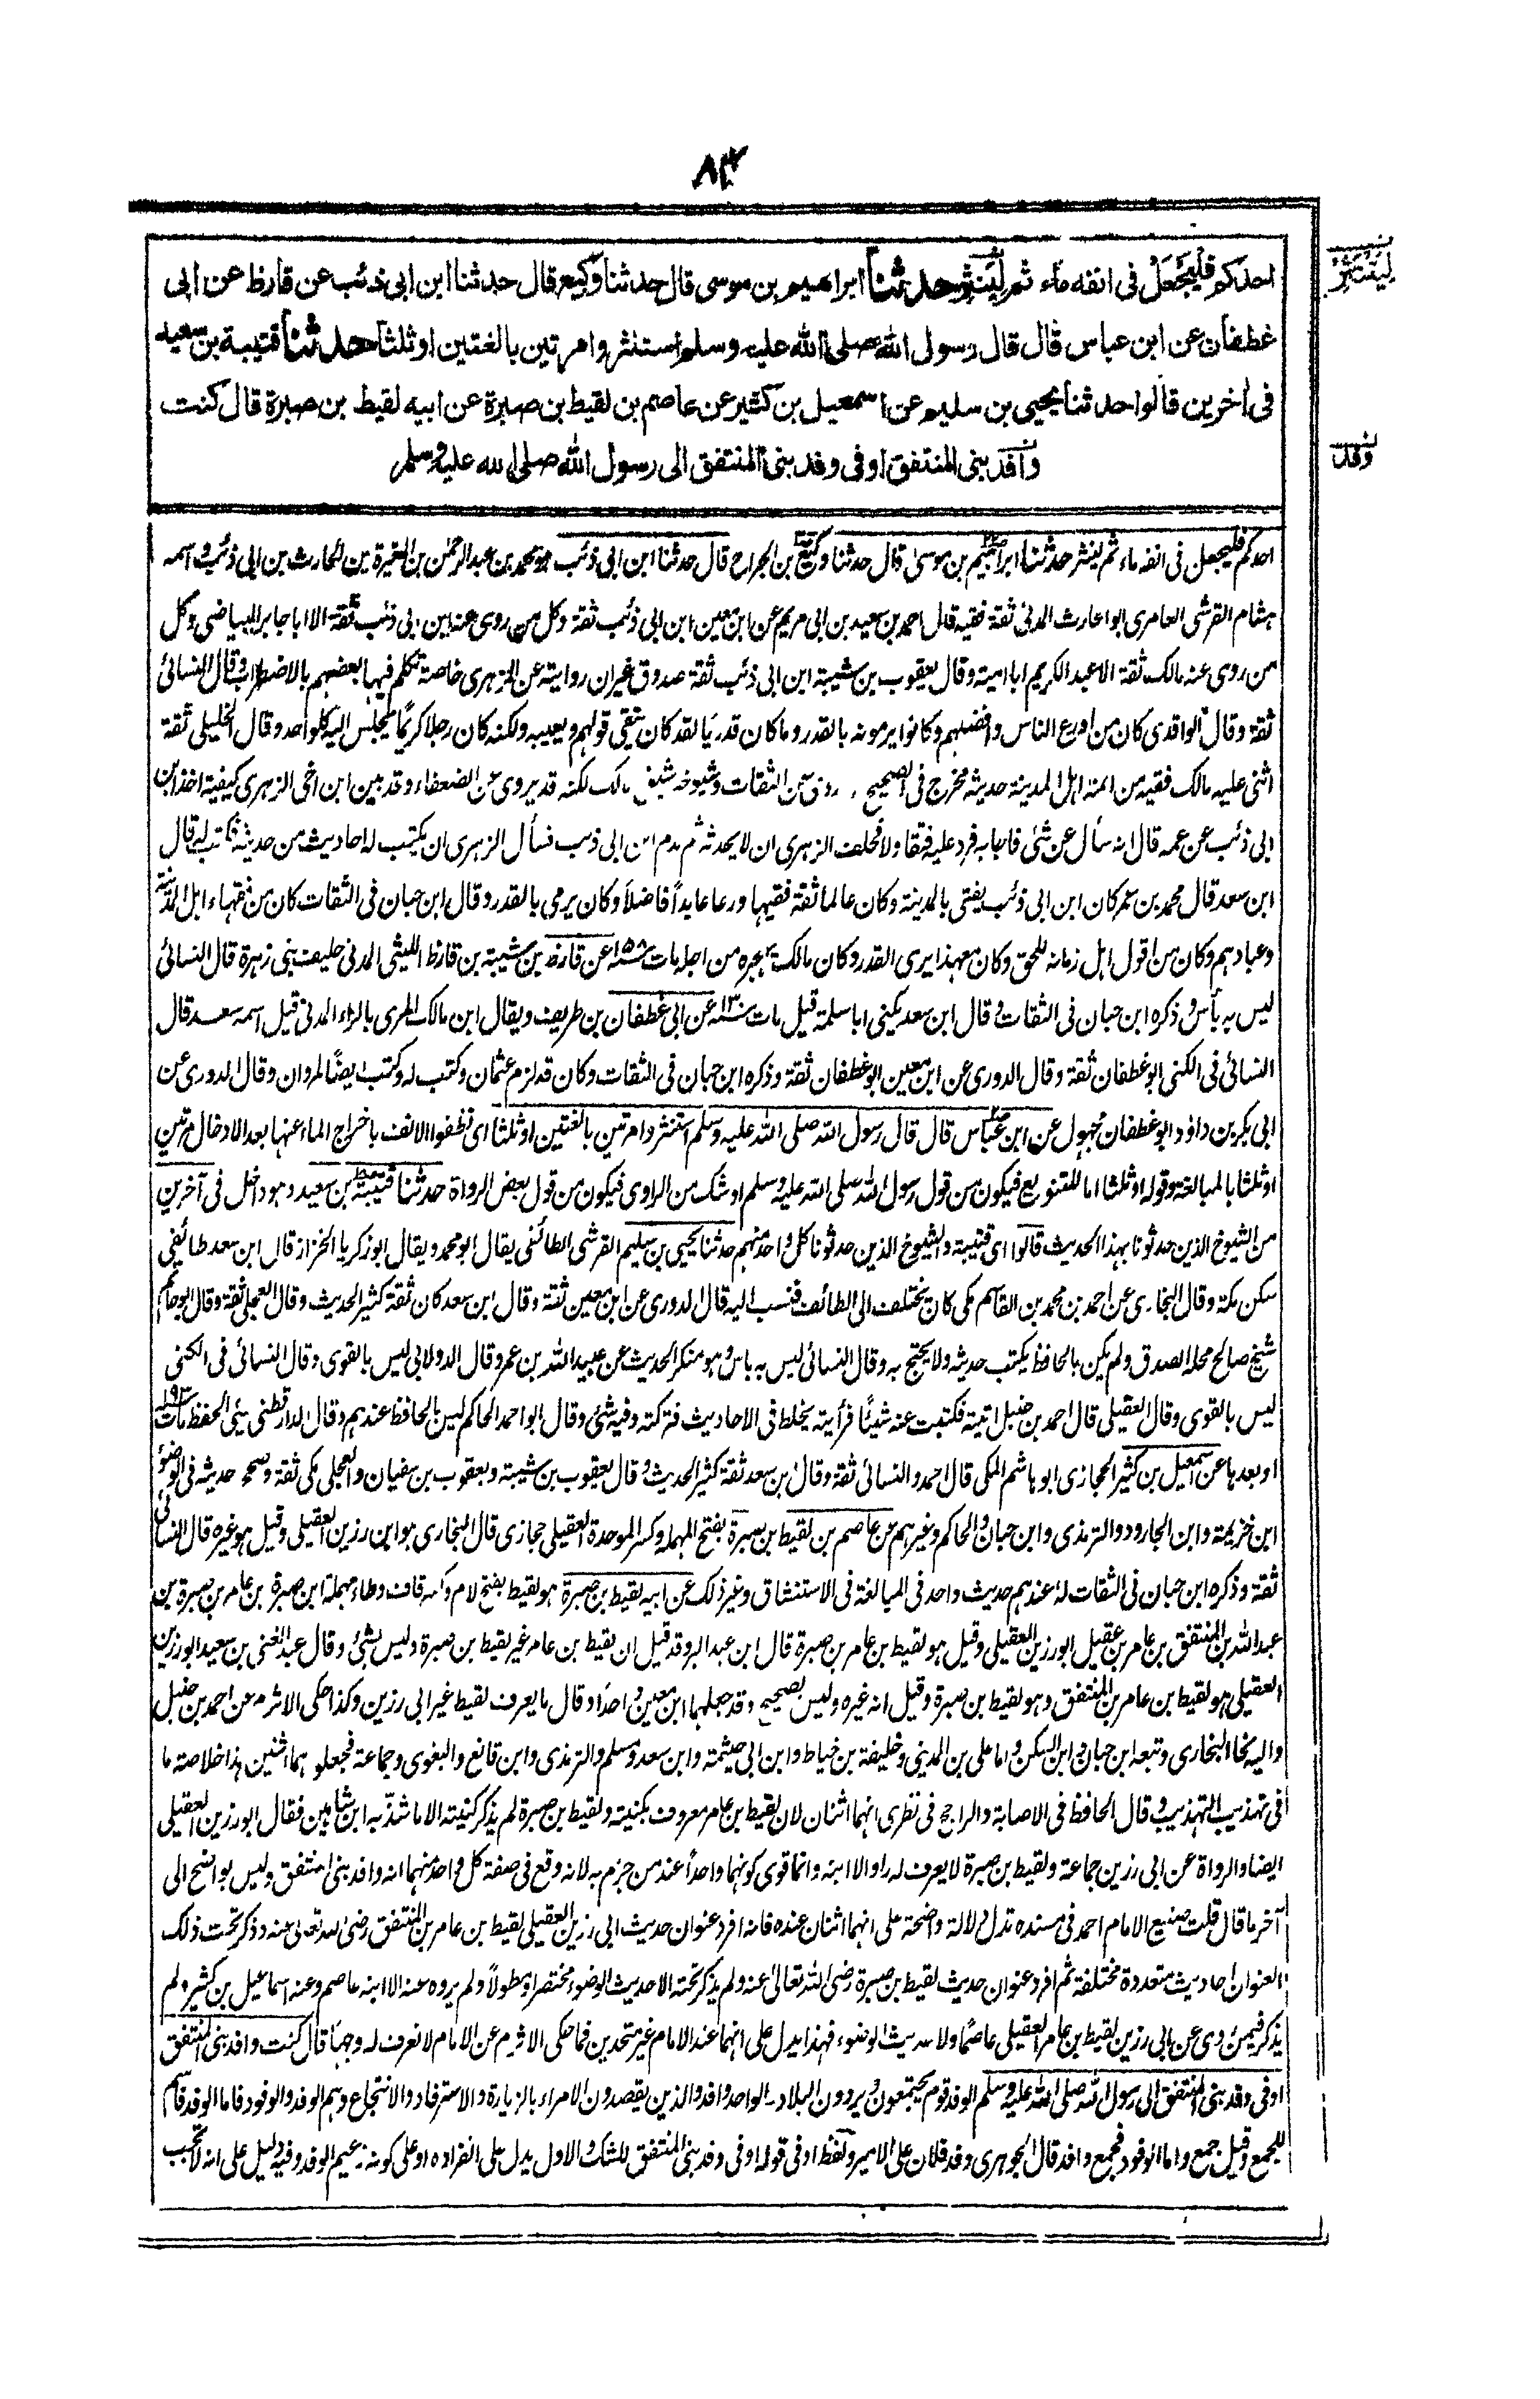 ٨٣
احدكم فليجعل فى انفه ماء ثم لينثر حدثنا ابراهيم بن موسى قال حدثنا وكيع قال حدثنا ابن ابى ذئب عن قارظ عن ابى
غطفان عن ابن عباس قال قال رسول الله صلى الله عليه وسلم استنثروا مرتين بالغتين او ثلثا حدثنا قتيبة بن سعيد
فى اخرين قالوا حدثنا يحيى بن سليم عن اسمعيل بن كثير عن عاصم بن لقيط بن صبرة عن ابيه لقيط بن صبرة قال كنت
وافد بنى المنتفق او فى وفد بنى المنتفق الى رسول الله صلى الله عليه وسلم
وفد
احدكم فليجعل فى انفه ماء ثم لينثر حدثنا ابراهيم بن موسى قال حدثنا وكيع بن الجراح قال حدثنا ابن ابى ذئب هو محمد بن عبد الرحمن بن المغيرة بن الحارث بن ابى ذئب واسمه
هشام القرشى العامرى ابو الحارث المدنى ثقة فقيه قال احمد بن سعيد بن ابى مريم عن ابن معين ابن ابى ذئب ثقة وكل من روى عنه ابن ابى ذئب ثقة الا ابا جابر البياضى وكل
من روى عنه مالك ثقة الا عبد الكريم ابا امية وقال يعقوب بن شيبة ابن ابى ذئب ثقة صدوق غير ان روايته عن الزهرى خاصة تكلم فيها بعضهم بالاضطراب وقال النسائى
ثقة وقال الواقدى كان من اورع الناس وافضلهم وكانوا يرمونه بالقدر وما كان قدريا لقد كان يتقى قولهم ويعيبه ولكنه كان رجلا كريما يجلس اليه كل واحد وقال الخليلى ثقة
اثنى عليه مالك فقيه من ائمة اهل المدينة حديثه مخرج فى الصحيح من الثقات وشيوخه شيوخ مالك لكنه قد يروى عن الضعفاء وقد بين ابن اخى الزهرى كيفية اخذ ابن
ابى ذئب عن عمه قال انه سأل عن شئ فاجابه فرد عليه فتقاولا فحلف الزهرى ان لا يحدثه ثم ندم ابن ابى ذئب فسأل الزهرى ان يكتب له احاديث من حديثه فكتب له قال
ابن سعد قال محمد بن عمر كان ابن ابى ذئب يفتى بالمدينة وكان عالما ثقة فقيها ورعا عابداً فاضلاً وكان يرمى بالقدر وقال ابن حبان فى الثقات كان من فقهاء اهل المدينة
وعبادهم وكان من اقول اهل زمانه للحق وكان مع هذا يرى القدر وكان مالك يهجره من اجله مات سنة ١٥٨ عن قارظ بن شيبة بن قارظ الليثى المدنى حليف بنى زهرة قال النسائى
ليس به بأس وذكره ابن حبان فى الثقات وقال ابن سعد يكنى ابا سلمة قيل مات سنة ١٣٠ عن ابى غطفان بن طريف ويقال ابن مالك المرى بالراء المدنى قيل اسمه سعد قال
النسائى فى الكنى ابو غطفان ثقة وقال الدورى عن ابن معين ابو غطفان ثقة وذكره ابن حبان فى الثقات وكان قد لزم عثمان وكتب له وكتب ايضًا لمروان وقال الدورى عن
ابى بكر بن داؤد ابو غطفان مجهول عن ابن عباس قال قال رسول الله صلى الله عليه وسلم استنثروا مرتين بالغتين او ثلثا اى نظفوا الانف باخراج الماء عنها بعد الادخال مرتين
او ثلثا بالمبالغة وقوله او ثلثا اما للتنويع فيكون من قول رسول الله صلى الله عليه وسلم او شك من الراوى فيكون من قول بعض الرواة حدثنا قتيبة بن سعيد وهو داخل فى آخرين
من الشيوخ الذين حدثونا بهذا الحديث قالوا اى قتيبة والشيوخ الذين حدثونا كل واحد منهم حدثنا يحيى بن سليم القرشى الطائفى يقال ابو محمد ويقال ابو زكريا الخزاز قال ابن سعد طائفى
سكن مكة وقال البخارى عن احمد بن محمد بن القاسم مكى كان يختلف الى الطائف فنسب اليه قال الدورى عن ابن معين ثقة وقال ابن سعد كان ثقة كثير الحديث وقال العجلى ثقة وقال ابو حاتم
شيخ صالح محله الصدق ولم يكن بالحافظ يكتب حديثه ولا يحتج به وقال النسائى ليس به باس وهو منكر الحديث عن عبيد الله بن عمر وقال الدولابى ليس بالقوى وقال النسائى فى الكنى
ليس بالقوى وقال العقيلى قال احمد بن حنبل اتيته فكتبت عنه شيئًا فرأيته يخلط فى الاحاديث فتركته وفيه شئ وقال ابو احمد الحاكم ليس بالحافظ عندهم وقال الدارقطنى سيئ الحفظ مات
او بعدها عن اسمعيل بن كثير الحجازى ابو هاشم المكى قال احمد والنسائى ثقة وقال ابن سعد ثقة كثير الحديث وقال يعقوب بن شيبة ويعقوب بن سفيان والعجلى مكى ثقة وصحح حديثه فى الوضوء
ابن خزيمة وابن الجارود والترمذى وابن حبان والحاكم وغيرهم عن عاصم بن لقيط بن صبرة بفتح المهملة وكسر الموحدة العقيلى حجازى قال البخارى هو ابن رزين العقيلى وقيل هو غيره قال النسائى
ثقة وذكره ابن حبان فى الثقات له عندهم حديث واحد فى المبالغة فى الاستنشاق وغير ذلك عن ابيه لقيط بن صبرة هو لقيط بفتح لام وكسر قاف وطاء مهملة ابن صبرة بن عامر بن صبرة بن
عبد الله بن المنتفق بن عامر بن عقيل ابو رزين العقيلى وقيل هو لقيط بن عامر بن صبرة قال ابن عبد البر وقد قيل ان لقيط بن عامر غير لقيط بن صبرة وليس بشئ وقال عبد الغنى بن سعيد ابو رزين
العقيلى هو لقيط بن عامر بن المنتفق وهو لقيط بن صبرة وقيل انه غيره وليس بصحيح وقد جعلهما ابن معين واحدًا وقال ما يعرف لقيط غير ابى رزين وكذا حكى الاثرم عن احمد بن حنبل
واليه نحا البخارى وتبعه ابن حبان وابن السكن واما على بن المدينى وخليفة بن خياط وابن ابى خيثمة وابن سعد ومسلم والترمذى وابن قانع والبغوى وجماعة فجعلوهما اثنين هذا خلاصة ما
فى تهذيب التهذيب وقال الحافظ فى الاصابة والراجح فى نظرى انهما اثنان لان لقيط بن عامر معروف بكنيته ولقيط بن صبرة لم يذكر كنيته الا ما شذ به ابن شاهين فقال ابو رزين العقيلى
ايضا والرواة عن ابى رزين جماعة ولقيط بن صبرة لا يعرف له راو الا ابنه وانما قوى كونهما واحداً عند من جزم به لانه وقع فى صفة كل واحد منهما انه وافد بنى المنتفق وليس بواضح الى
آخر ما قال قلت صنيع الامام احمد فى مسنده تدل دلالة واضحة على انهما اثنان عنده فانه افرد عنوان حديث ابى رزين العقيلى لقيط بن عامر بن المنتفق رضى الله تعالى عنه وذكر تحت ذلك
العنوان احاديث متعددة مختلفة ثم افرد عنوان حديث لقيط بن صبرة رضى الله تعالى عنه ولم يذكر تحته الا حديث الوضوء مختصرا ومطولاً ولم يروه عنه الا ابنه عاصم وعنه اسماعيل بن كثير ولم
يذكر فيمن روى عن ابى رزين لقيط بن عامر العقيلى عاصمًا ولا حديث الوضوء فهذا يدل على انهما عند الامام غير متحدين فما حكى الاثرم عن الامام لا نعرف له وجها قال كنت وافد بنى المنتفق
او فى وفد بنى المنتفق الى رسول الله صلى الله عليه وسلم الوفد قوم يجتمعون ويردون البلاد۔ الواحد وافد والذين يقصدون الامراء بالزيارة والاسترفاد والانتجاع وهم الوفد والوفود فاما الوفد فاسم
للجمع وقيل جمع واما الوفود فجمع وافد قال الجوهرى وفد فلان على الامير ولفظ او فى قوله او فى وفد بنى المنتفق للشك والاول يدل على انفراده او على كونه زعيم الوفد وفيه دليل على انه لا تجب